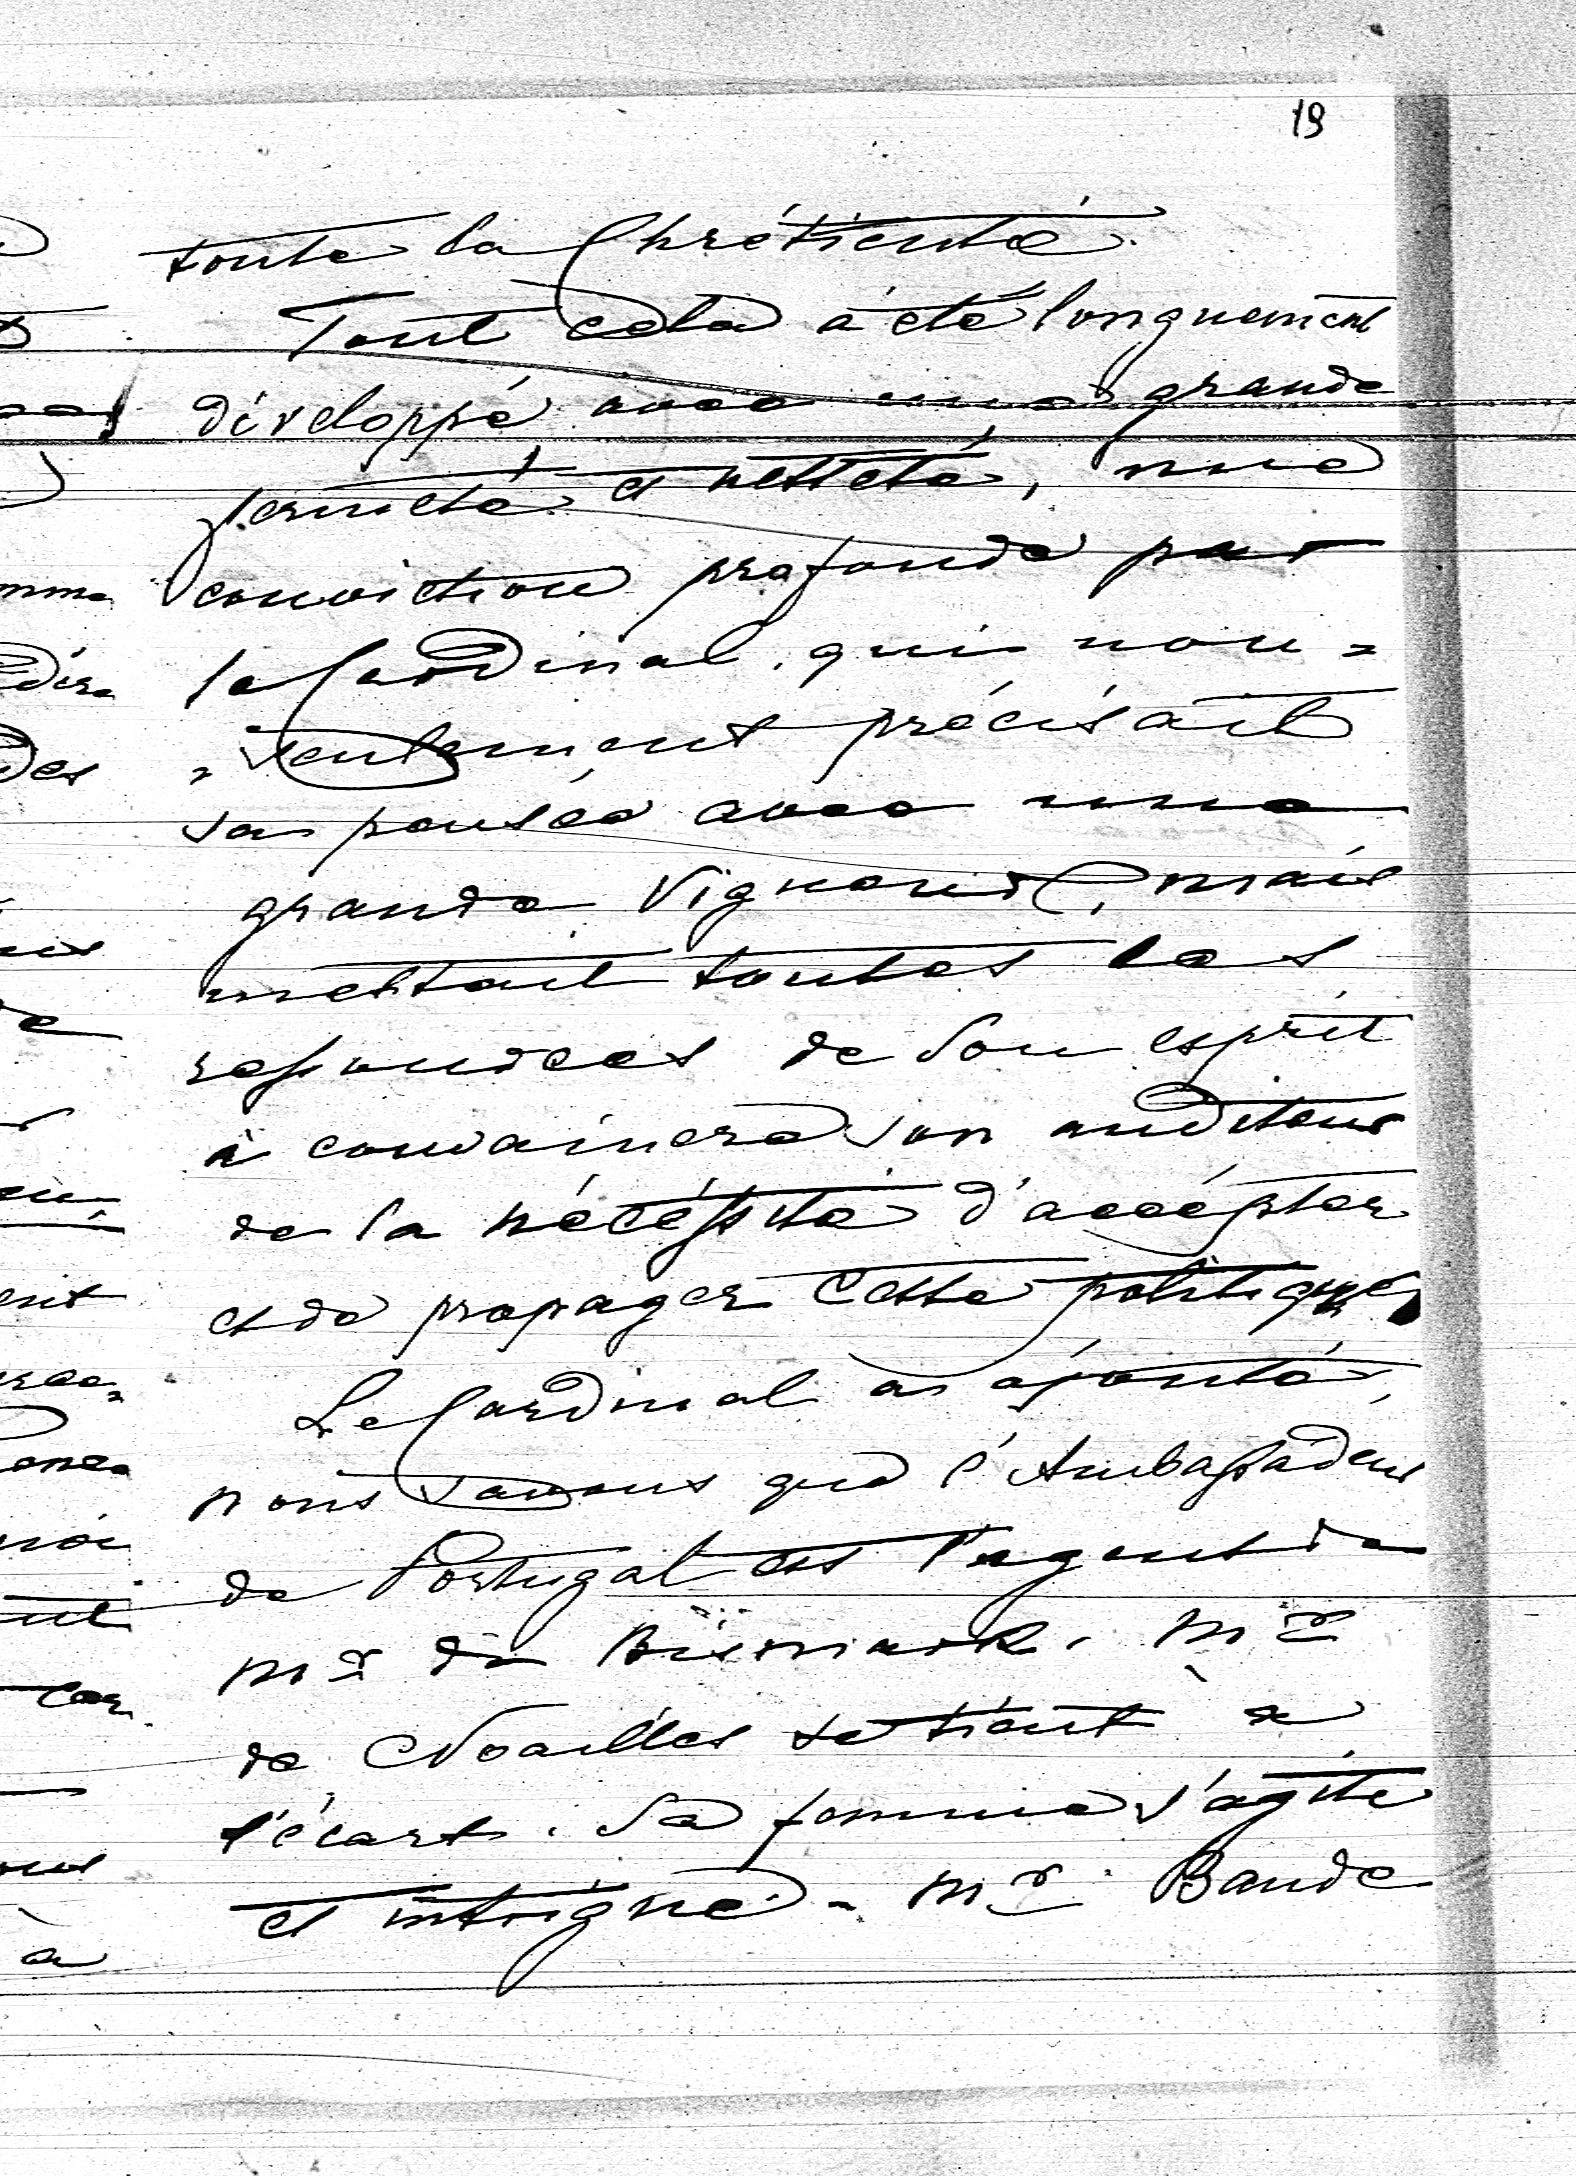 19
toute la Chrétienté.
Tout cela a été longuement
développé avec une grande
fermeté et netteté, une
conviction profonde par
le Cardinal, qui non =
= seulement précisait
sa pensée avec une
grande vigueur, mais
mettait toutes les
ressources de son esprit
à convaincre son auditeur
de la nécéssité d'accépter
et de propager cette politique,
Le Cardinal a ajouté,
nous savons que l'Ambassadeur
de Portugal est l'agent de
Mr de Bismark. Mr
de Noailles se tient à
l'écart. Sa femme s'agite
et intrigue. Mr Baude